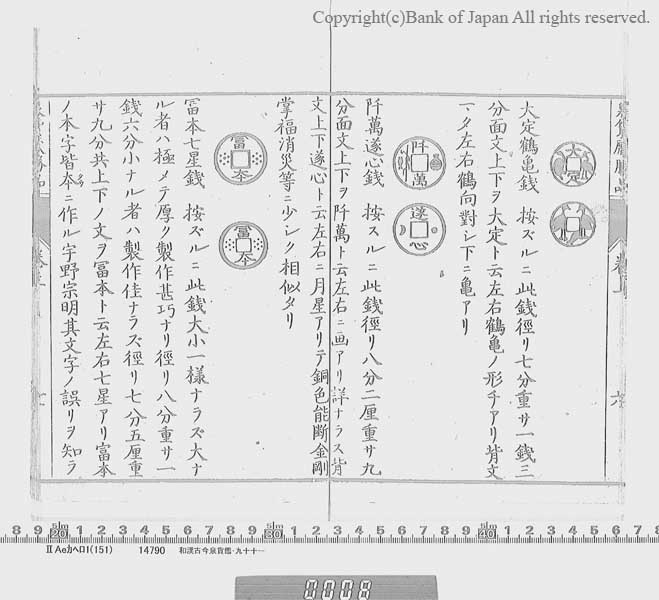 Copyright(c)Bank of Japan All rights reserved.
大定
大定鶴亀銭 按ズルニ此銭徑リ七分重サ一銭三
分面文上下ヲ大定ト云左右鶴亀ノ形チアリ背文
一メ左右鶴向對シ下ニ亀アリ
阡萬
遂心
阡萬遂心銭 按スルニ此銭徑リ八分二厘重サ九
分面文上下ヲ阡萬ト云左右ニ画アリ詳ナラス背
文上下遂心ト云左右ニ月星アリテ銅色能断金剛
掌福消災等ニ少シク相似タリ
冨本
冨本
冨本七星銭 按ズルニ此銭大小一様ナラズ大ナ
ル者ハ極メテ厚ク製作甚巧ナリ徑リ八分重サ一
銭六分小ナル者ハ製作佳ナラズ徑リ七分五厘重
サ九分共上下ノ文ヲ冨夲ト云左右七星アリ富夲
ノ本字皆夲ニ作ル宇野宗明其文字ノ誤リヲ知ラ
六
8 9 20 1 2 3 4 5 6 7 8 9 30 1 2 3 4 5 6 7 8 9 40 1 2 3 4 5 6 7 8
ⅡAeカヘロ1(151) 14790 和漢古今泉貨鑑・九十十一
0008